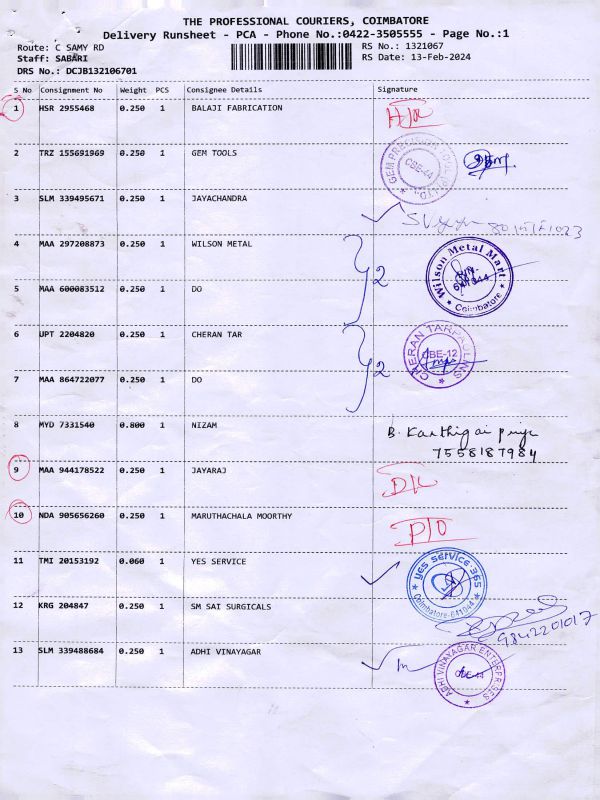 THE PROFESSIONAL COURIERS, COIMBATORE
Delivery Runsheet - PCA - Phone No.:0422-3505555 - Page No.:1
Route: C SAMY RD
RS No.: 1321067
Staff: SABARI
RS Date: 13-Feb-2024
DRS No.: DCJB132106701
S No Consignment No Weight PCS Consignee Details Signature
1 HSR 2955468 0.250 1 BALAJI FABRICATION
2 TRZ 155691969 0.250 1 GEM TOOLS CBE-44
3 SLM 339495671 0.250 1 JAYACHANDRA
4 MAA 297208873 0.250 1 WILSON METAL Wilson Metal Mart Coimbatore
2
5 MAA 600083512 0.250 1 DO
6 UPT 2204820 0.250 1 CHERAN TAR CHERAN TARPAULINS CBE-12
2
7 MAA 864722077 0.250 1 DO
8 MYD 7331540 0.800 1 NIZAM B. Karthigai priya
7558187984
9 MAA 944178522 0.250 1 JAYARAJ D/L
10 NDA 905656260 0.250 1 MARUTHACHALA MOORTHY P/O
11 TMI 20153192 0.060 1 YES SERVICE yes service 365 Coimbatore-641044
12 KRG 204847 0.250 1 SM SAI SURGICALS
9842201017
13 SLM 339488684 0.250 1 ADHI VINAYAGAR ADHI VINAYAGAR ENTERPRISES